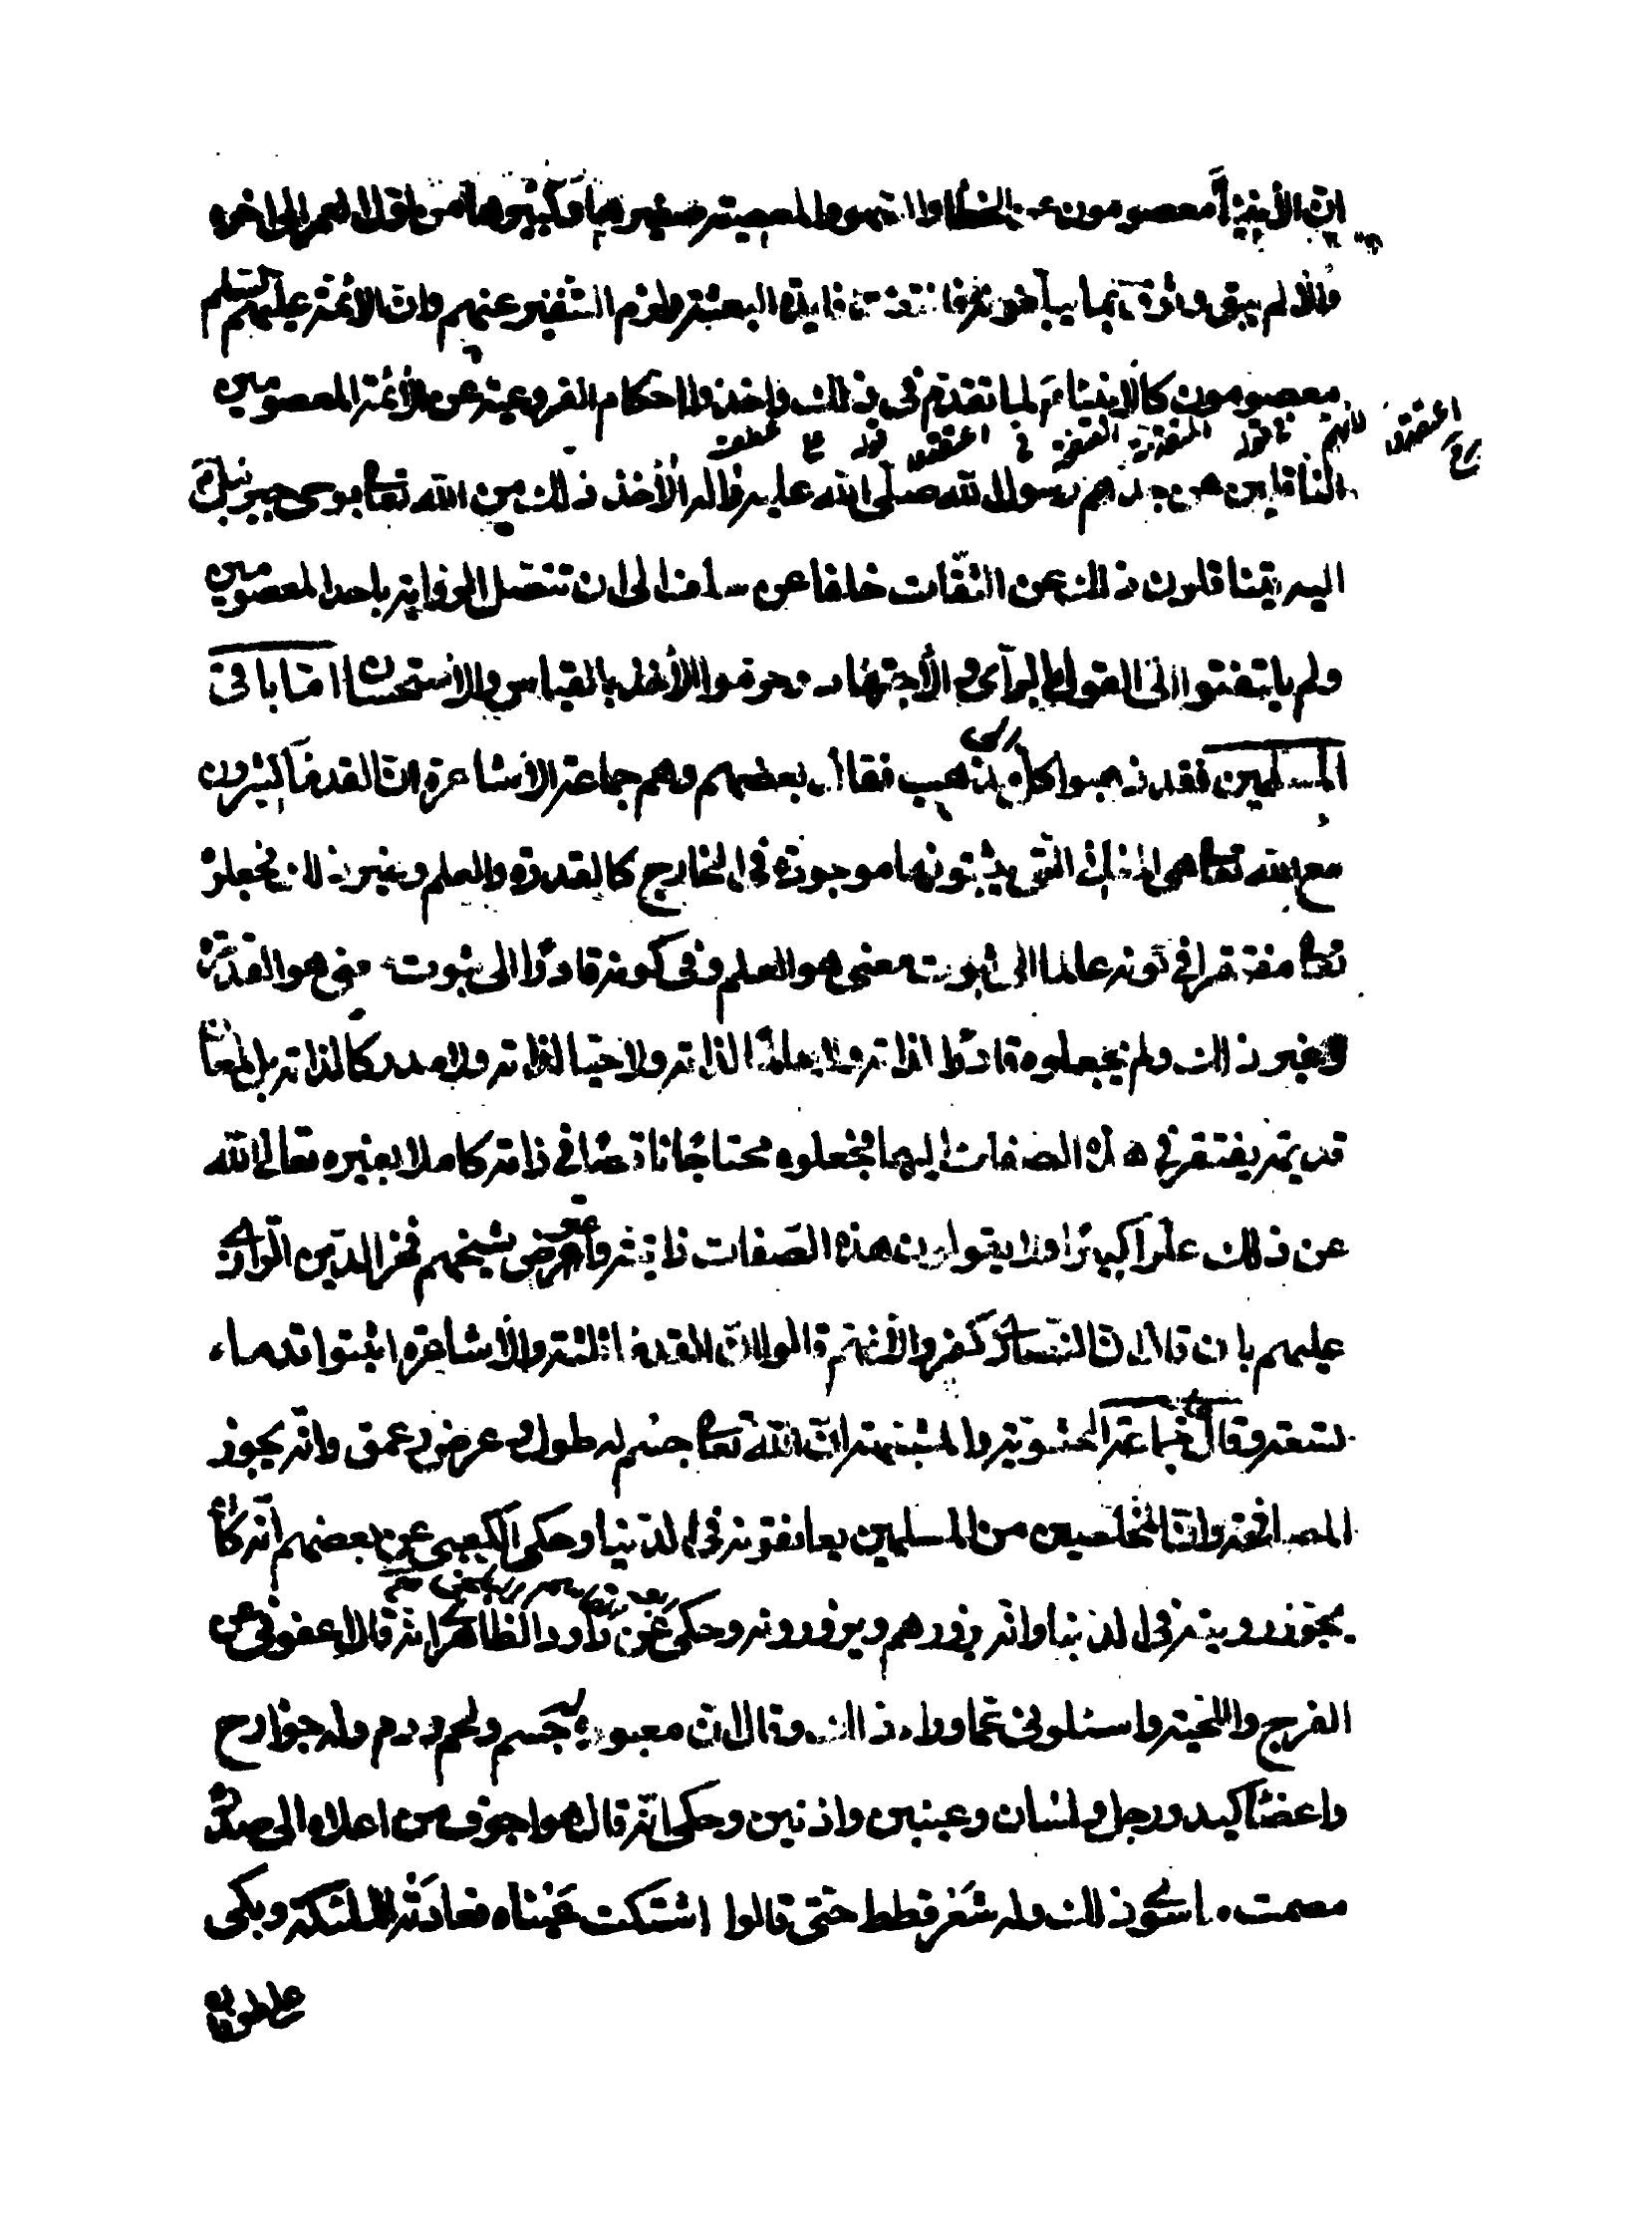 ان الأنبياء معصومون عن الخطأ والسهو والمعصية صغيرها وكبيرها من اول العمر الى اخره
والا لم يبق وثوق بما يبلغونه فانتفت فايدة البعثة ولزم التنفير عنهم وان الائمة عليهم السلم
معصومون كالانبياء لما تقدم في ذلك واخذوا احكام الفروعية عن الأئمة المعصومين
الناقلين عن جدهم رسول الله صلى الله عليه واله الأخذ ذلك من الله تعا بوحى جبرئيل
اليه يتناقلون ذلك عن الثقات خلفا عن سلف الى ان تتصل الرواية باحد المعصومين
ولم يلتفتوا الى القول بالرأى والاجتهاد وحرموا الأخذ بالقياس والاستحسان اما باقى
المسلمين فقد ذهبوا كل مذهب فقال بعضهم وهم جماعة الاشاعرة ان القدماء كثيرون
مع الله تعا هى المعانى التى يثبتونها موجودة في الخارج كالقدرة والعلم وغير ذلك فجعلوه
تعا مفتقرا في كونه عالما الى ثبوت معنى هو العلم وفى كونه قادرا الى ثبوت معنى هو القدرة
وغير ذلك ولم يجعلوه قادرا لذاته ولا عالما لذاته ولا حيا لذاته ولا مدركا لذاته بل لمعان
قديمة يفتقر في هذه الصفات اليها فجعلوه محتاجا ناقصا في ذاته كاملا بغيره تعالى الله
عن ذلك علوا كبيرا ولا يقولون هذه الصفات ذاتية واعترض شيخهم فخر الدين الرازى
عليهم بان قال ان النصارى كفروا لأنهم قالوا ان القدماء ثلثة والأشاعرة اثبتوا قدماء
تسعة وقال جماعة الحشوية والمشبهة ان الله تعا جسم له طول وعرض وعمق وانه يجوز
المصافحة وان المخلصين من المسلمين يعانقونه في الدنيا وحكى الكعبى عن بعضهم انه كان
يجوز رويته في الدنيا وانه يزورهم ويزورونه وحكى عن داود الظاهرى انه قال اعفونى عن
الفرج واللحية واسئلونى عما وراء ذلك وقال ان معبوده جسم ولحم ودم وله جوارح
واعضا كيد ورجل ولسان وعينين واذنين وحكى انه قال هو اجوف من اعلاه الى صدره
مصمت ما سوى ذلك وله شعر قطط حتى قالوا اشتكت عيناه فعادته الملئكة وبكى
على طوفان